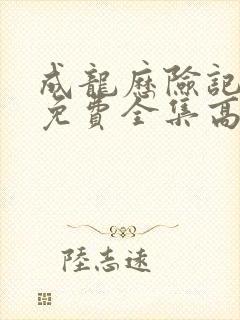 成龍歷險記
免費全集高
陸志遠